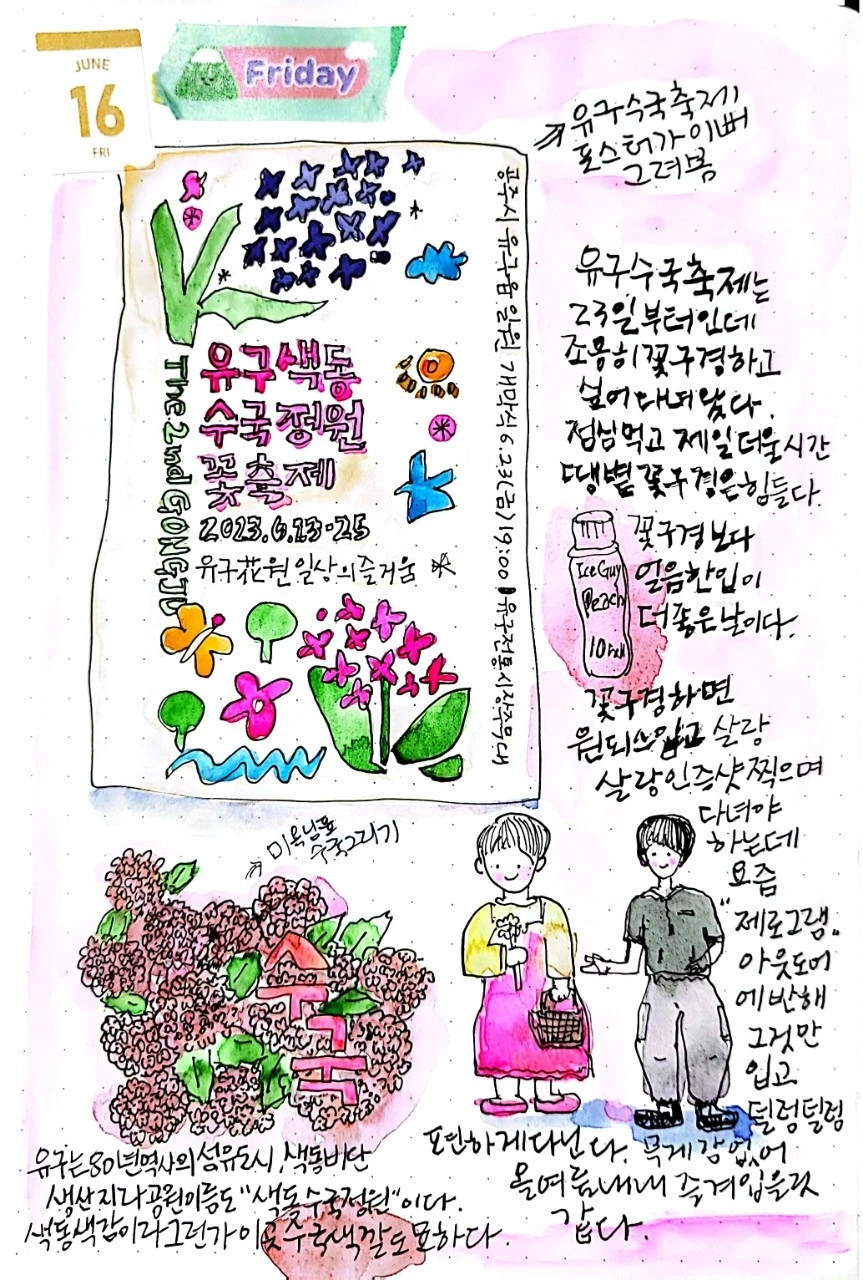 JUNE
16
FRI
Friday
유구수국축제
포스터가 이뻐
그려봄
유구색동
수국정원
꽃축제
The 2nd GONGJU
2023.6.23-25
유구花원 일상의 즐거움
공주시 유구읍 일원 개막식 6.23(금) 19:00 유구전통시장주무대
유구수국축제는
23일부터인데
조용히 꽃구경하고
싶어 다녀왔다.
점심먹고 제일 더울시간
땡볕 꽃구경은 힘들다.
꽃구경보다
얼음한입이
더 좋은 날이다.
Ice Guy
Peach
꽃구경하면
원피스 입고 살랑
살랑 인증샷 찍으며
다녀야
하는데
요즘
"제로그램"
아웃도어
에 반해
그것만
입고
털렁털렁
표 수국그리기
수국
유구는 80년역사의 섬유도시, 색동비단
생산지라 공원이름도 "색동수국정원"이다.
색동색감이라 그런가 이곳 수국색깔도 묘하다.
편하게 다닌다. 무게감 없어
올여름내내 즐겨입을것
같다.